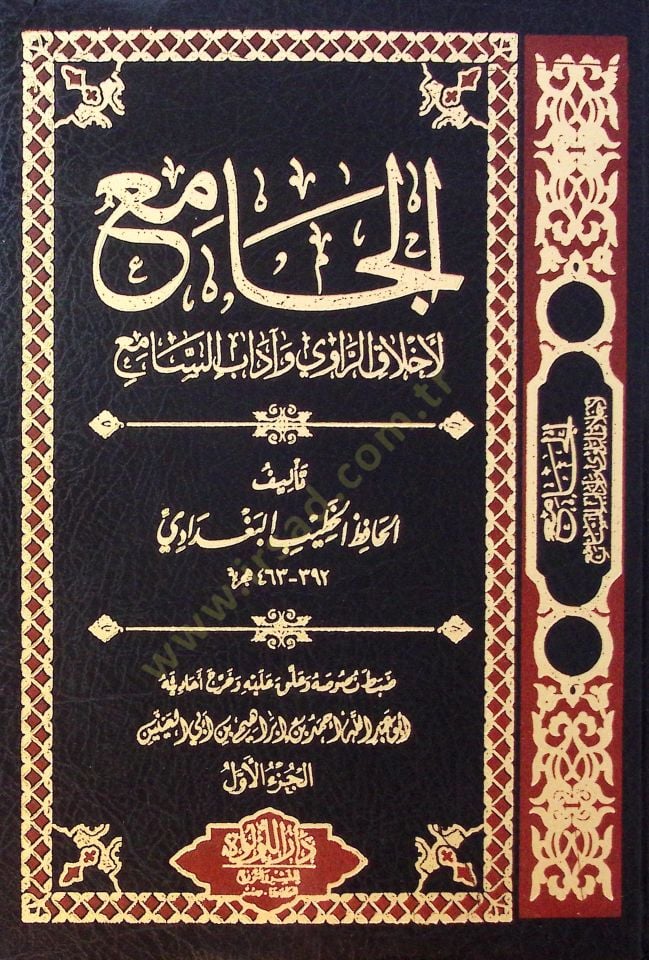 الجامع
لأخلاق الراوي وآداب السامع
تأليف
الحافظ الخطيب البغدادي
٣٩٢-٤٦٣ هـ
ضبط نصوصه وعلق عليه وخرج أحاديثه
أبو عبد الله أحمد بن إبراهيم بن أبي العينين
الجزء الأول
دار اللؤلؤة
للنشر والتوزيع
الجامع
لأخلاق الراوي وآداب السامع
www.irsad.com.tr